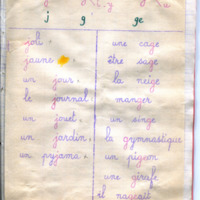 j g ge
joli
une cage
jaune
être sage
un jour
la neige
le journal
manger
un jouet
un singe
un jardin
la gymnastique
un pyjama
un pigeon
une girafe
il nageait